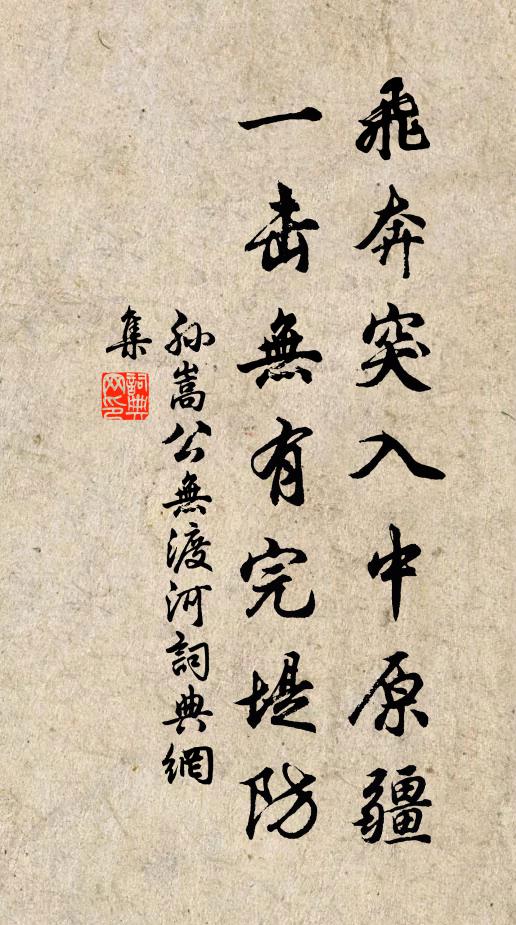 飛奔突入中原疆
一击無有完堤防
孙嵩公無渡河詞典網
集
詞典
网印